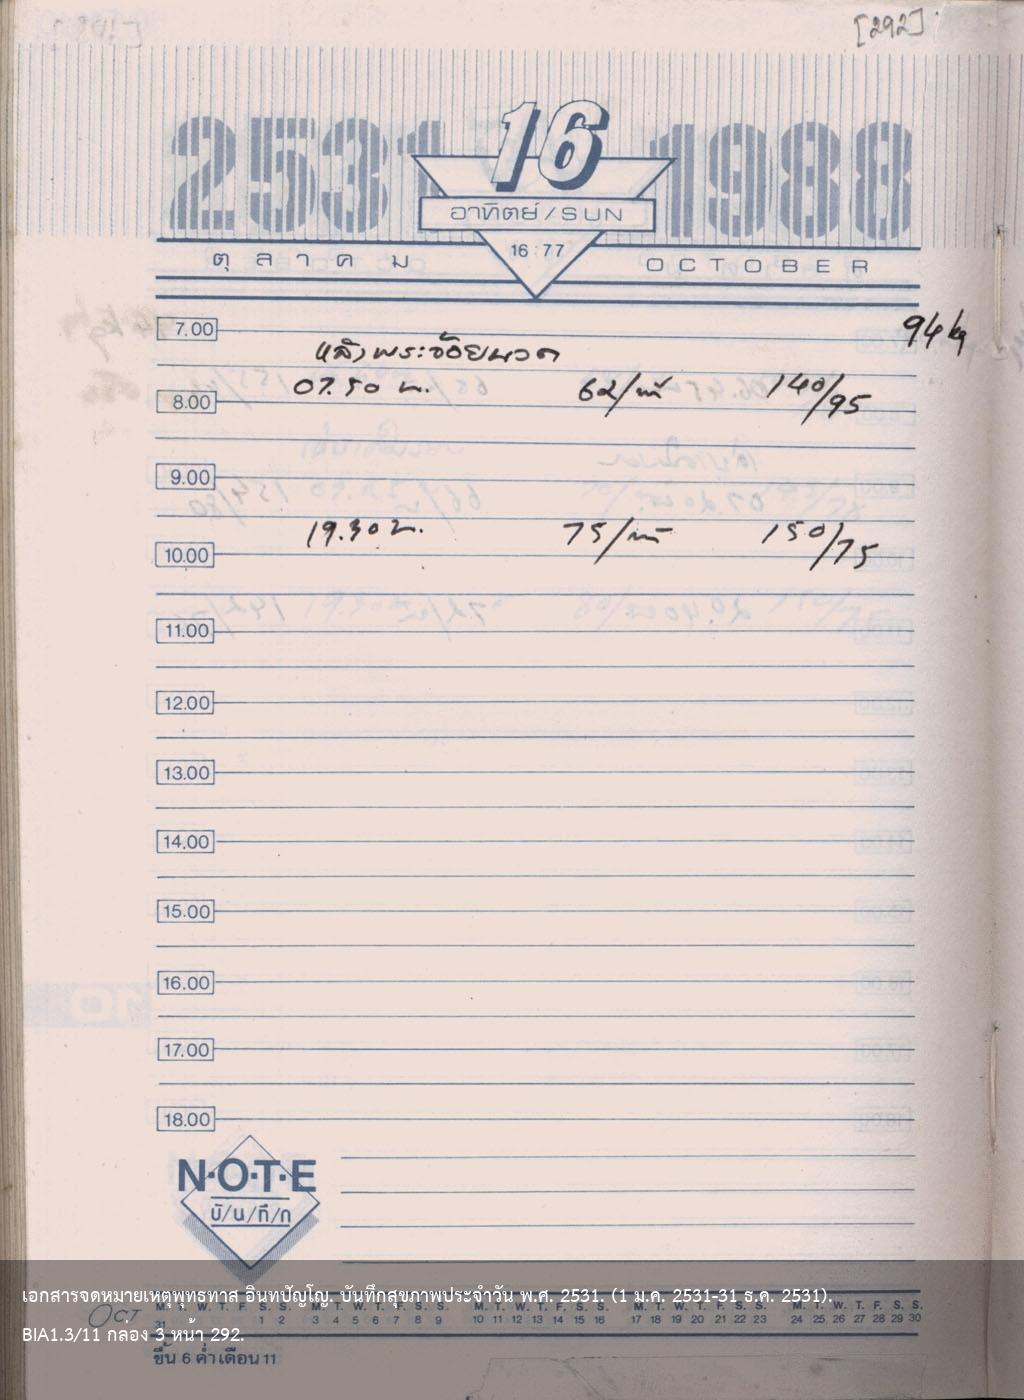 [292]
2531 16 1988
อาทิตย์/SUN
16:77
ตุลาคม OCTOBER
7.00 94 kg
แล้วพระจ้อยนวด
07.50 น. 62/นาที 140/95
8.00
9.00
19.30 น. 75/นาที 150/75
10.00
11.00
12.00
13.00
14.00
15.00
16.00
17.00
18.00
N·O·T·E
บั/น/ทึ/ก
เอกสารจดหมายเหตุพุทธทาส อินทปัญโญ. บันทึกสุขภาพประจำวัน พ.ศ. 2531. (1 ม.ค. 2531-31 ธ.ค. 2531).
OCT M. T. W. T. F. S. S. M. T. W. T. F. S. S. M. T. W. T. F. S. S. M. T. W. T. F. S. S. M. T. W. T. F. S. S.
31 1 2 3 4 5 6 7 8 9 10 11 12 13 14 15 16 17 18 19 20 21 22 23 24 25 26 27 28 29 30
BIA1.3/11 กล่อง 3 หน้า 292.
ขึ้น 6 ค่ำ เดือน 11